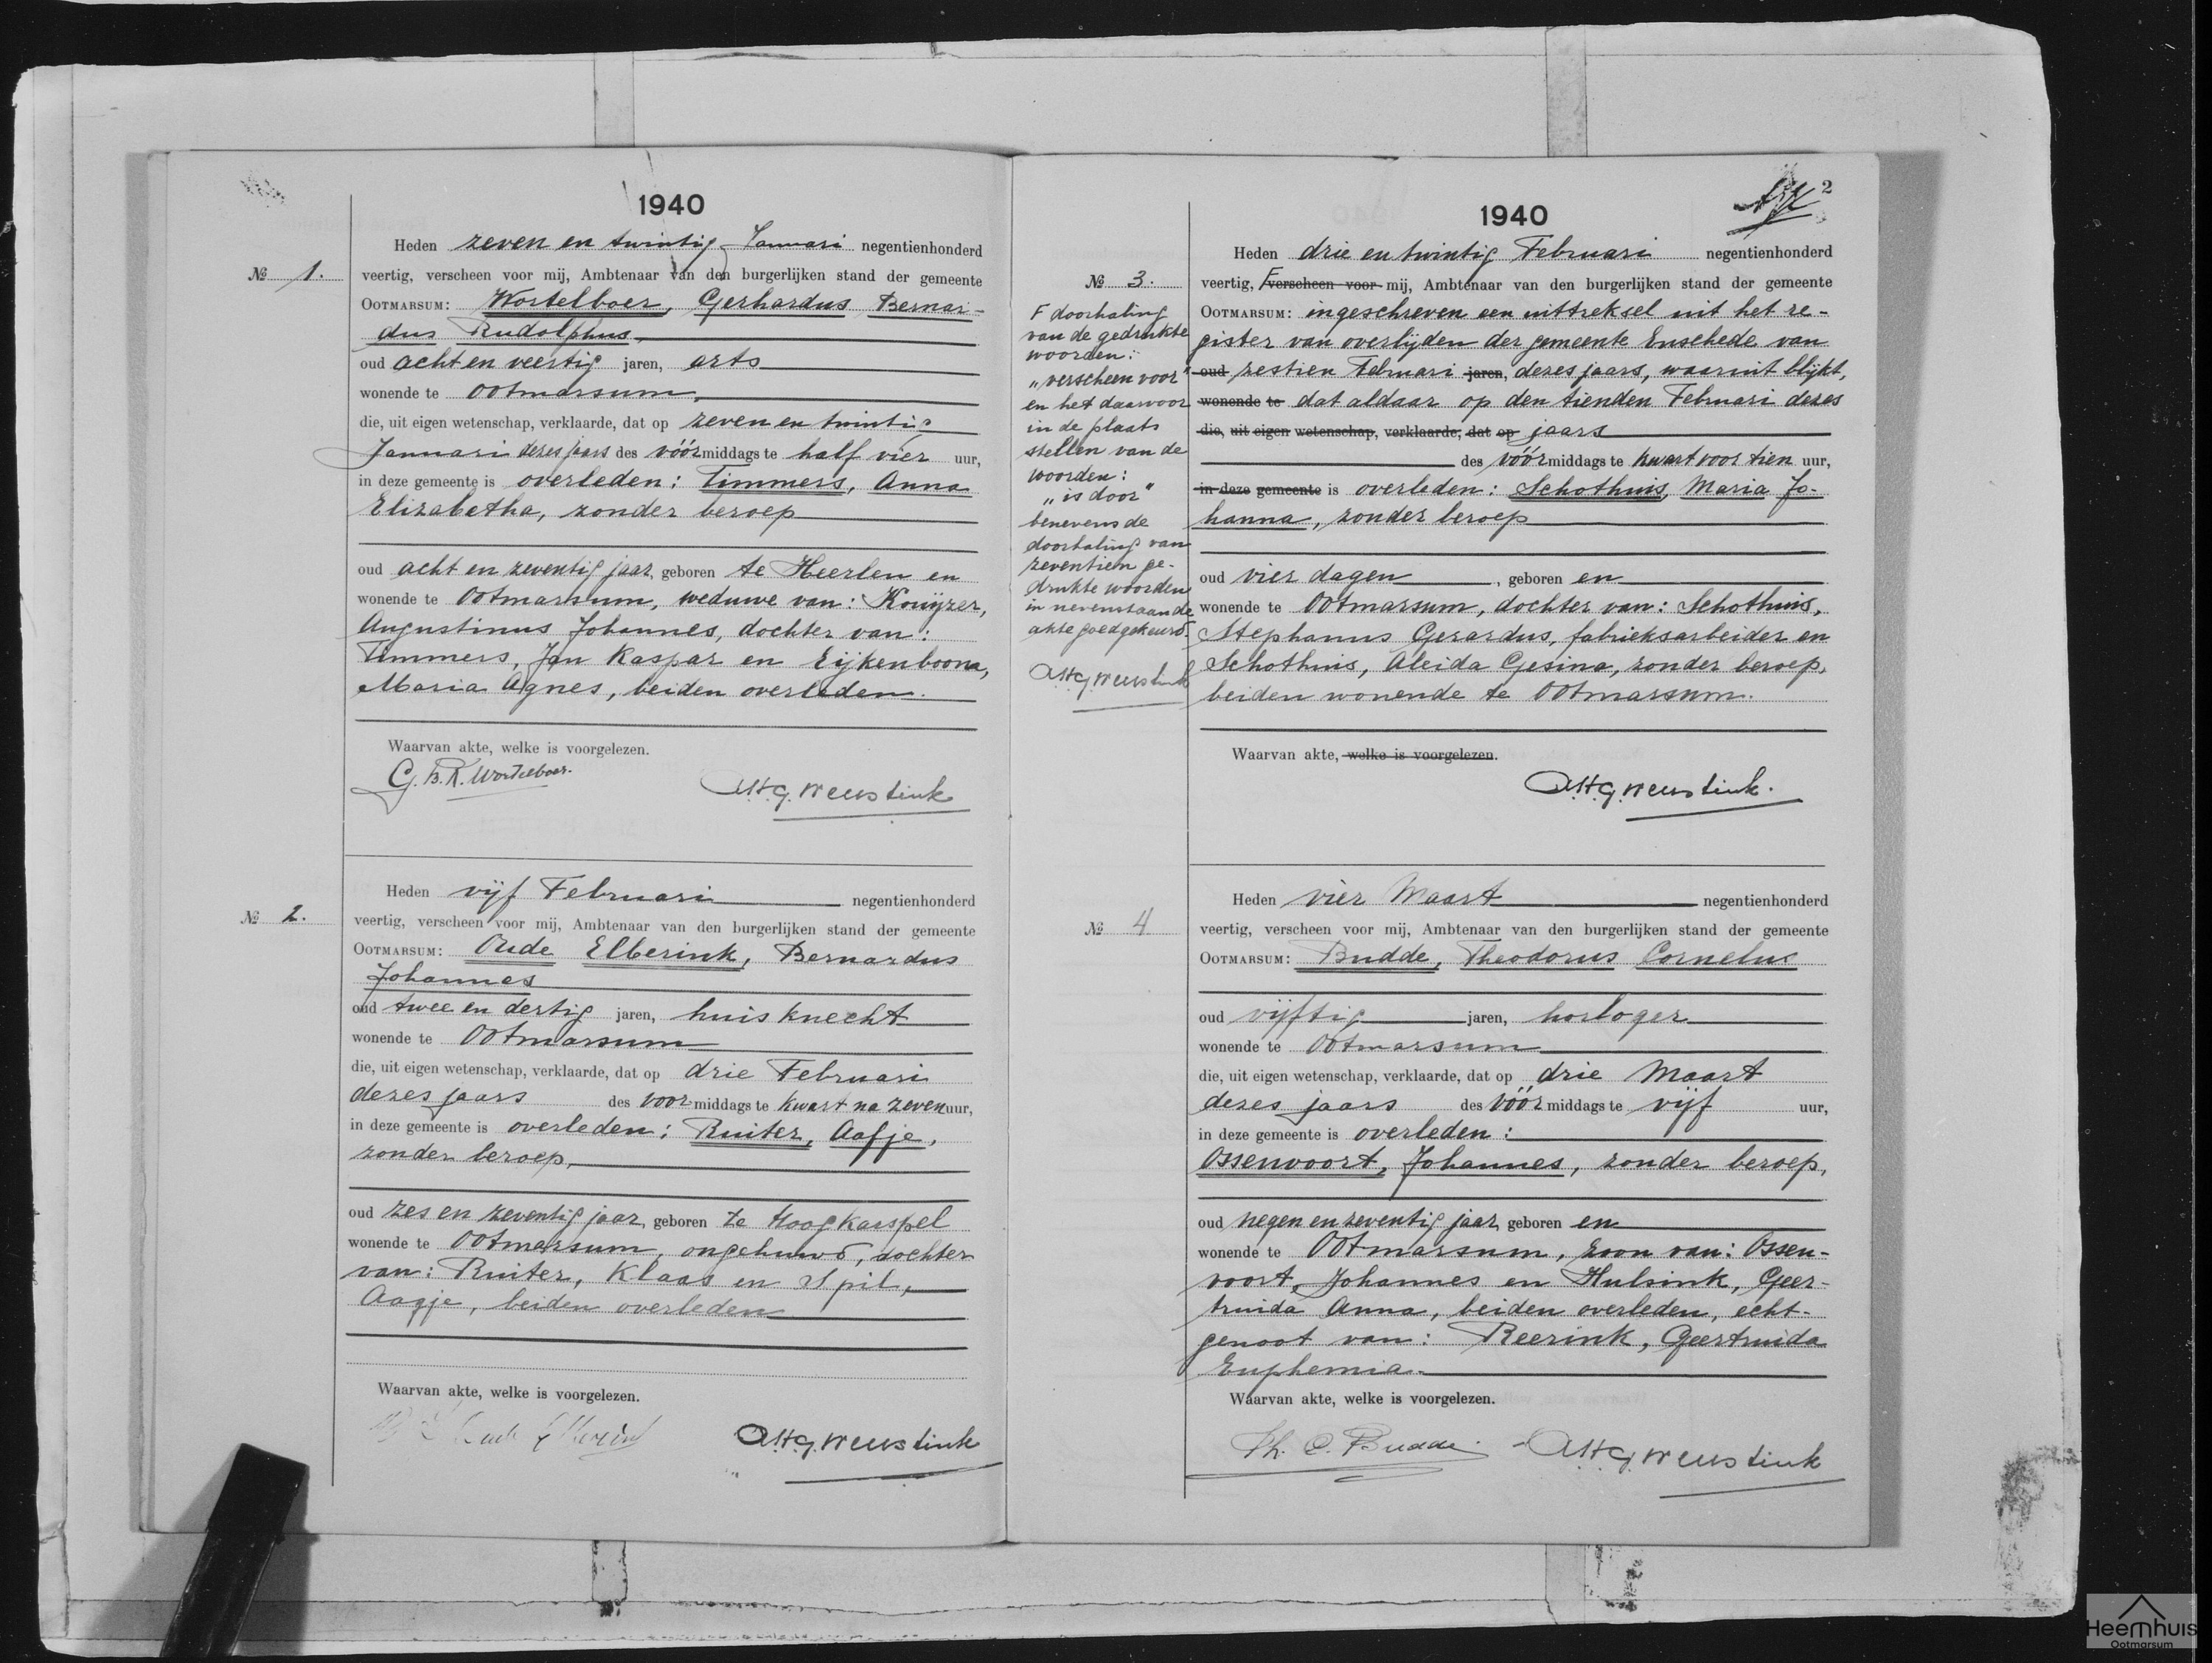 1940
Heden zeven en twintig Januari negentienhonderd
№ 1.
veertig, verscheen voor mij, Ambtenaar van den burgerlijken stand der gemeente
OOTMARSUM: Wortelboer, Gerhardus Bernar-
dus Rudolphus,
oud acht en veertig jaren, arts
wonende te Ootmarsum,
die, uit eigen wetenschap, verklaarde, dat op zeven en twintig
Januari dezes jaars des vóórmiddags te half vier uur,
in deze gemeente is overleden: Timmers, Anna
Elizabetha, zonder beroep
oud acht en zeventig jaar, geboren te Heerlen en
wonende te Ootmarsum, weduwe van: Kouijzer,
Augustinus Johannes, dochter van:
Timmers, Jan Kaspar en Eijkenboom,
Maria Agnes, beiden overleden.
Waarvan akte, welke is voorgelezen.
G.B.R. Wortelboer.
AHG Weustink
Heden vijf Februari negentienhonderd
№ 2.
veertig, verscheen voor mij, Ambtenaar van den burgerlijken stand der gemeente
OOTMARSUM: Oude Elberink, Bernardus
Johannes
oud twee en dertig jaren, huisknecht
wonende te Ootmarsum
die, uit eigen wetenschap, verklaarde, dat op drie Februari
dezes jaars des voormiddags te kwart na zeven uur,
in deze gemeente is overleden: Ruiter, Aafje,
zonder beroep,
oud zes en zeventig jaar, geboren te Hoogkarspel
wonende te Ootmarsum, ongehuwd, dochter
van: Ruiter, Klaas en Spil,
Aagje, beiden overleden
Waarvan akte, welke is voorgelezen.
AHG Weustink
2
1940
Heden drie en twintig Februari negentienhonderd
№ 3.
veertig, F verscheen voor mij, Ambtenaar van den burgerlijken stand der gemeente
OOTMARSUM: ingeschreven een uittreksel uit het re-
gister van overlijden der gemeente Enschede van
oud zestien Februari jaren, dezes jaars, waaruit blijkt,
wonende te dat aldaar op den tienden Februari dezes
die, uit eigen wetenschap, verklaarde, dat op jaars
des vóórmiddags te kwart voor tien uur,
in deze gemeente is overleden: Schothuis, Maria Jo-
hanna, zonder beroep
oud vier dagen, geboren en
wonende te Ootmarsum, dochter van: Schothuis,
Stephanus Gerardus, fabrieksarbeider en
Schothuis, Aleida Gesina, zonder beroep,
beiden wonende te Ootmarsum.
Waarvan akte, welke is voorgelezen.
AHG Weustink.
F doorhaling
van de gedrukte
woorden:
"verscheen voor"
en het daarvoor
in de plaats
stellen van de
woorden:
"is door"
benevens de
doorhaling van
zeventien ge-
drukte woorden
in nevenstaande
akte goedgekeurd.
AHG Weustink
Heden vier Maart negentienhonderd
№ 4
veertig, verscheen voor mij, Ambtenaar van den burgerlijken stand der gemeente
OOTMARSUM: Budde, Theodorus Cornelus
oud vijftig jaren, horloger
wonende te Ootmarsum
die, uit eigen wetenschap, verklaarde, dat op drie Maart
dezes jaars des vóórmiddags te vijf uur,
in deze gemeente is overleden:
Ossenvoort, Johannes, zonder beroep,
oud negen en zeventig jaar, geboren en
wonende te Ootmarsum, zoon van: Ossen-
voort, Johannes en Hulsink, Geer-
truida Anna, beiden overleden, echt-
genoot van: Reerink, Geertruida
Euphemia.
Waarvan akte, welke is voorgelezen.
Th. C. Budde.
AHG Weustink
Heemhuis
Ootmarsum